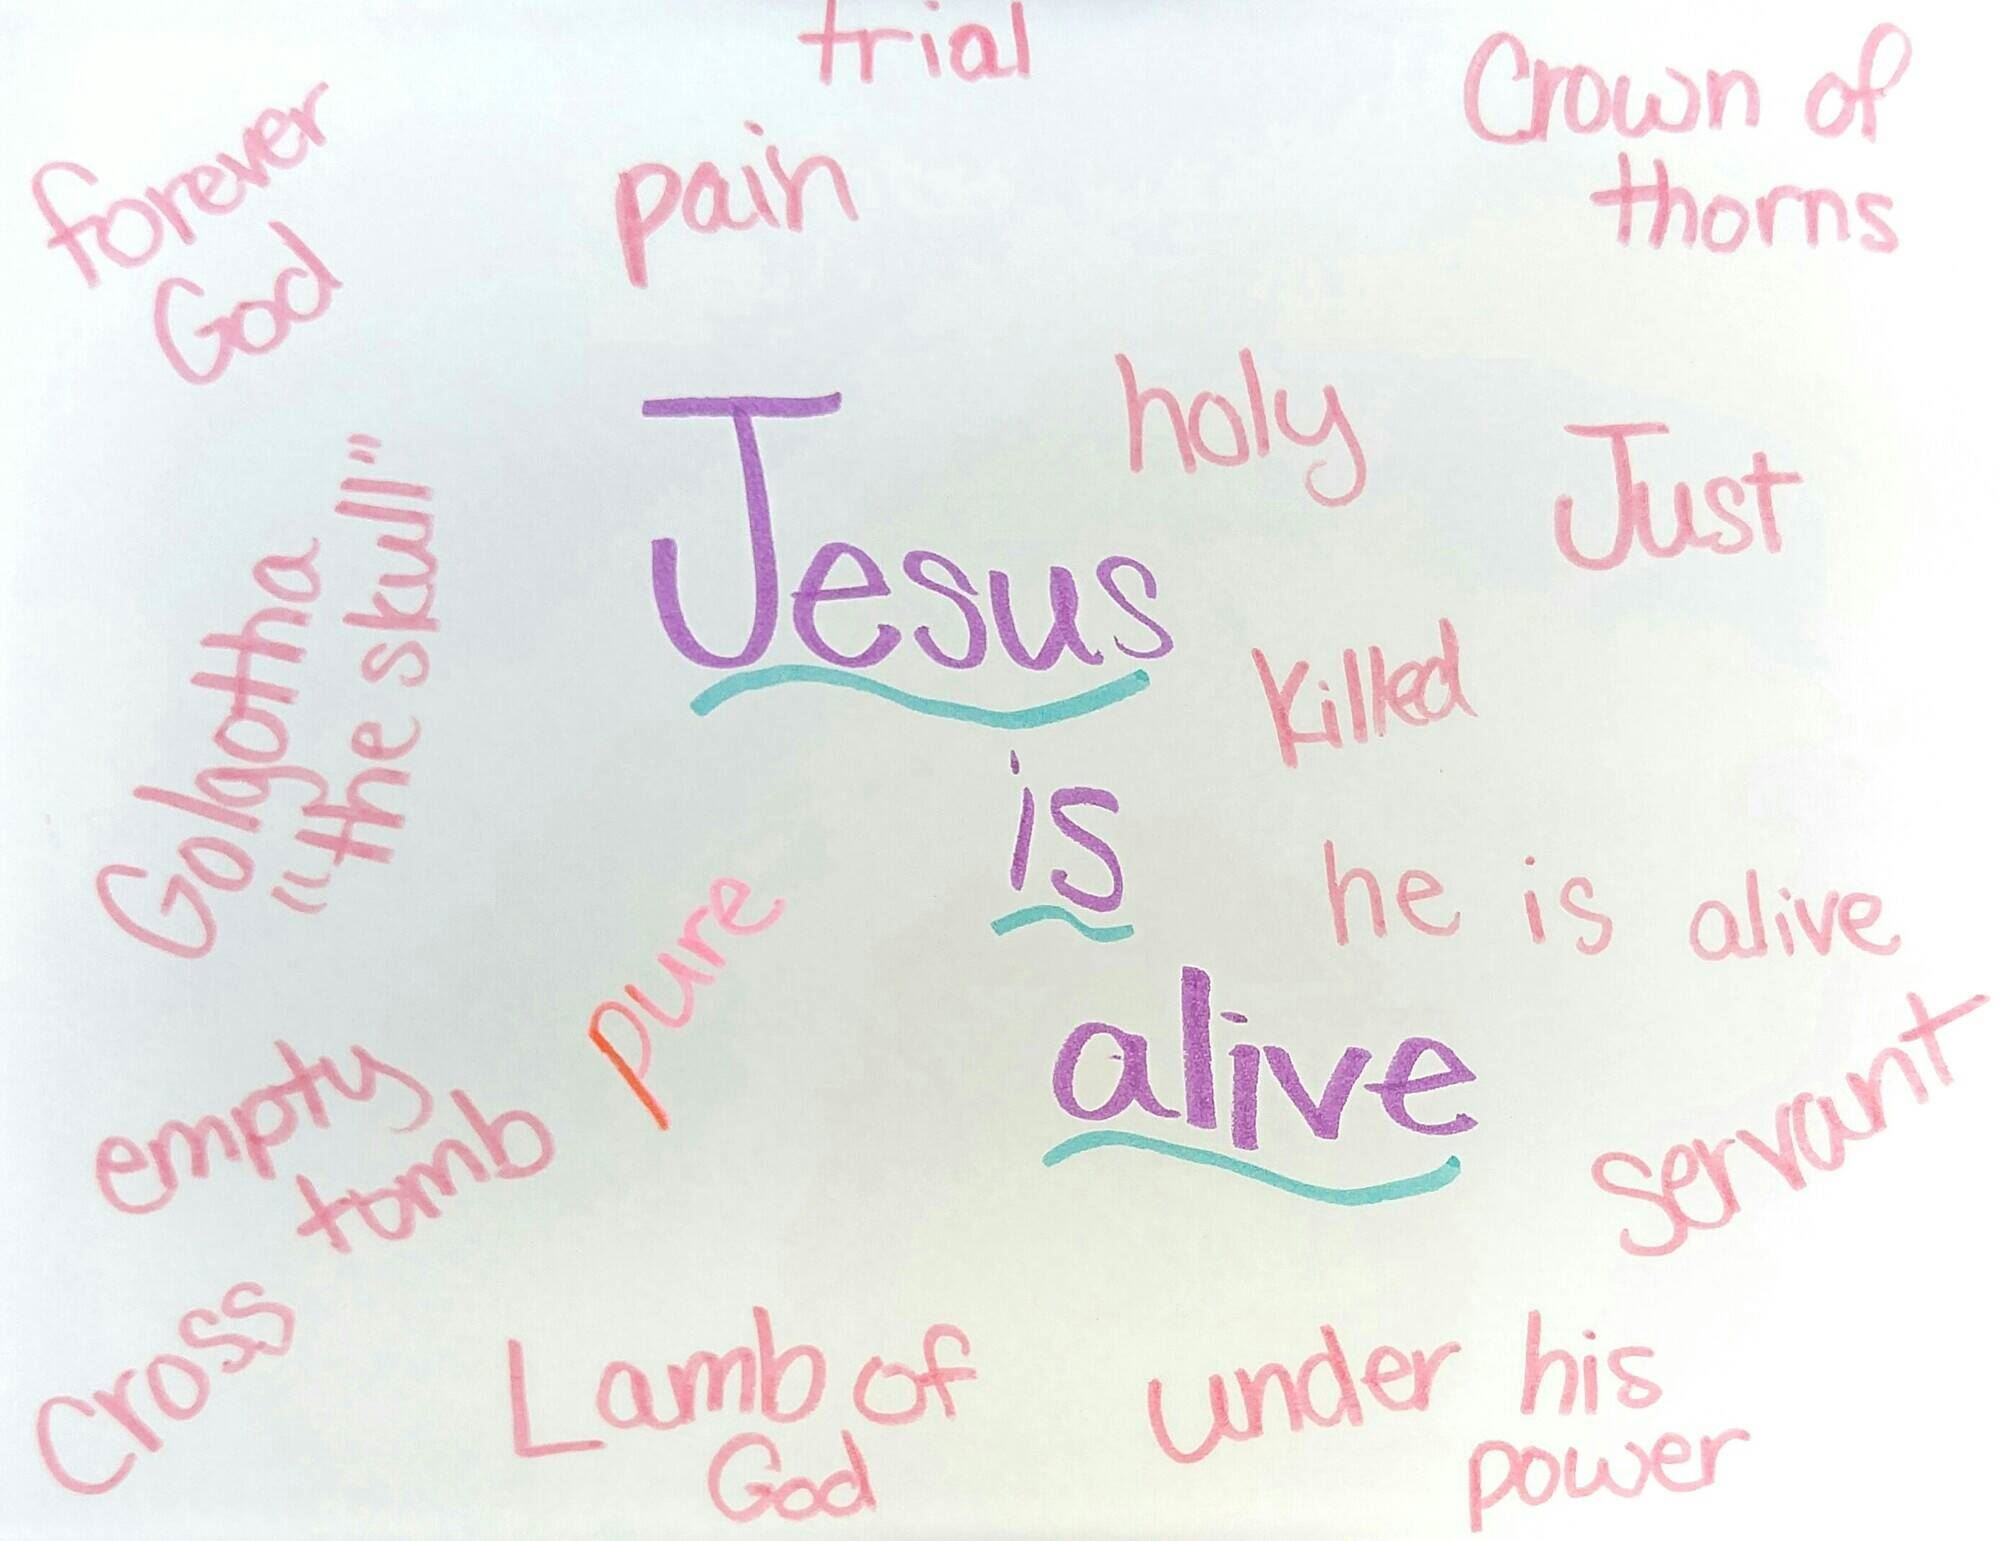 trial
Crown of
thorns
forever
God
pain
holy
Just
Jesus
Golgotha
"the skull"
killed
is
he is alive
pure
alive
servant
empty
tomb
cross
Lamb of
God
under his
power